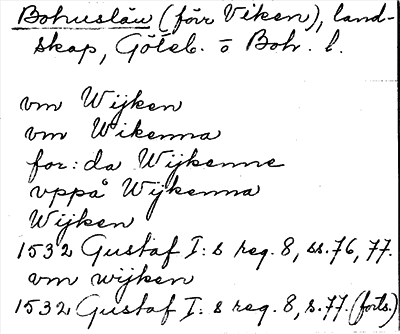 Bohuslän (förr Viken), land-
skap, Göteb. o Boh. l.
vm Wijken
vm Wikenna
for:da Wijkenne
vppå Wijkenna
Wijken
1532 Gustaf I:s reg. 8, ss. 76, 77.
vm wijken
1532 Gustaf I:s reg. 8, s. 77. (forts.)